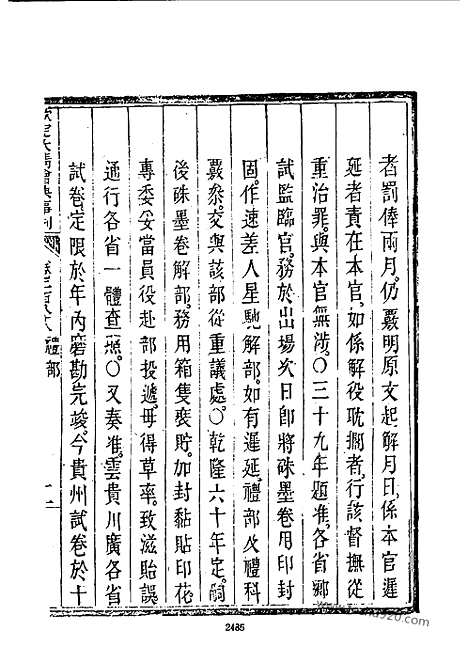 者罰俸兩月。仍覈明原文起解月日。係本官遲
延者責在本官。如係解役耽擱者。行該督撫從
重治罪。與本官無涉。〇三十九年題准。各省鄉
試監臨官。務於出場次日即將硃墨卷用印封
固。作速差人星馳解部。如有遲延。禮部及禮科
覈參。交與該部從重議處。〇乾隆六十年定。嗣
後硃墨卷解部。務用箱隻裝貯。加封黏貼印花
專委妥當員役赴部投遞。毋得草率。致滋貽誤。
通行各省一體查照。〇又奏准。雲貴川廣各省
試卷。定限於年內磨勘完竣。今貴州試卷於十
禮部
2485